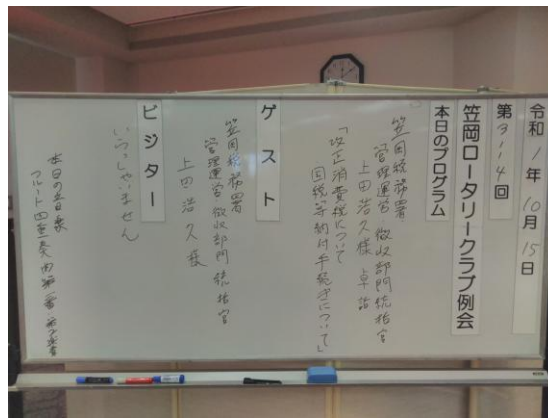 令和1年10月15日
第3114回
笠岡ロータリークラブ例会
本日のプログラム
笠岡税務署
管理運営 徴収部門統括官
上田浩久様 卓話
「改正消費税について
国税等納付手続きについて」
ゲスト
笠岡税務署
管理運営 徴収部門統括官
上田浩久様
ビジター
いらっしゃいません
本日の音楽
フルート四重奏曲